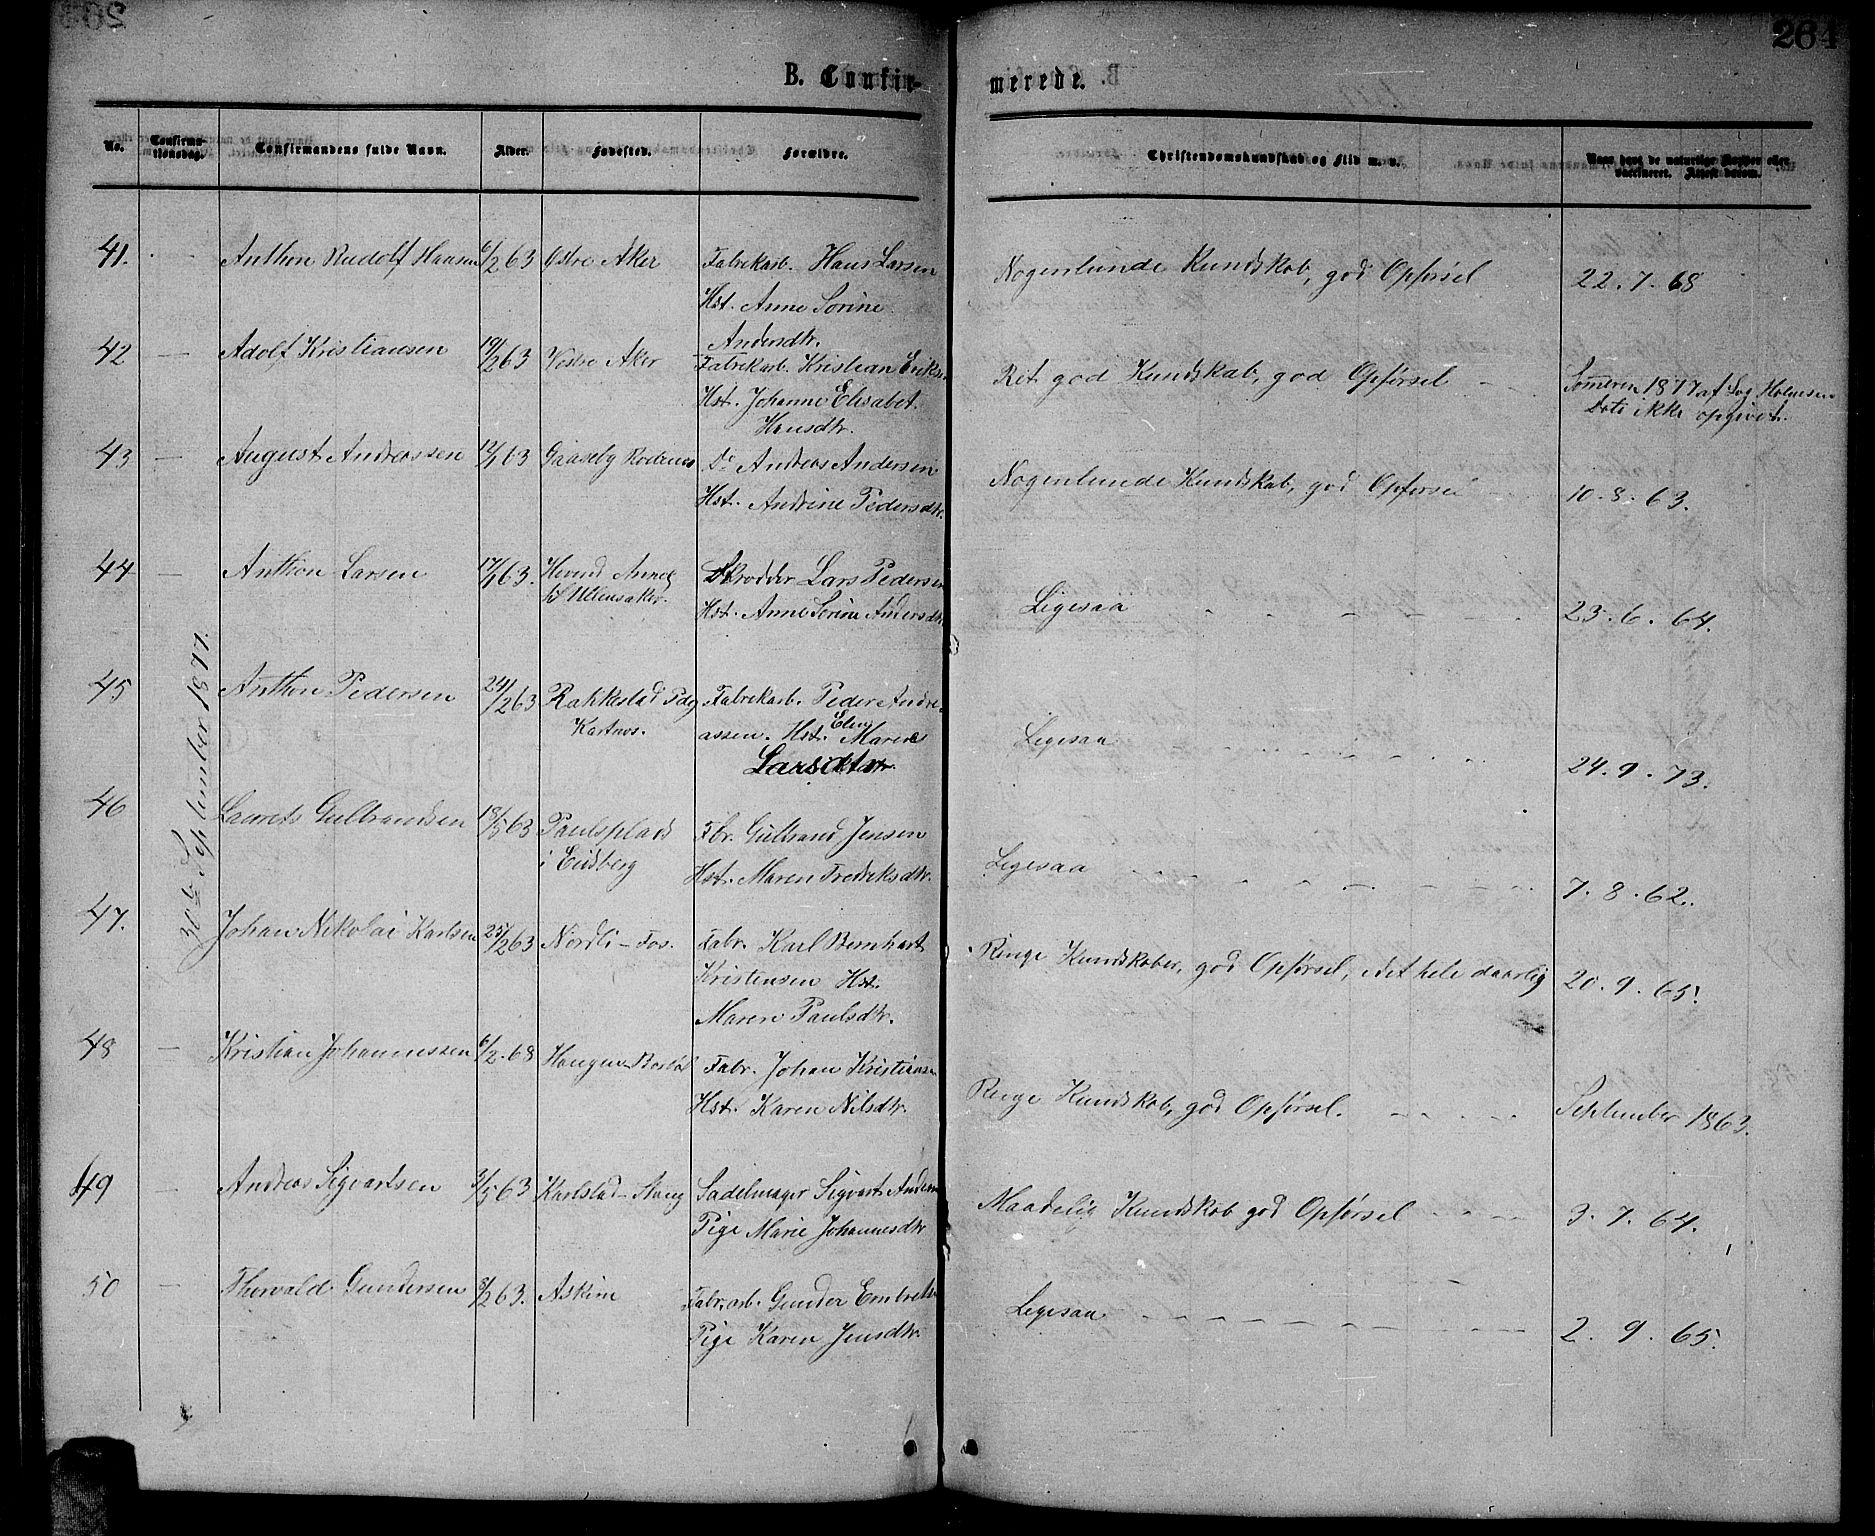 264
B. Confirmerede.
No.
Confirmationsdag.
Confirmandens fulde Navn.
Alder.
Fødested.
Forældre.
Christendomskundskab og Flid m. v.
Naar havt de naturlige Kopper eller vaccineret. Attest derom.
30te September 1877.
41. Anthon Rudolf Hansen 6/2 63 Østre Aker Fabrikarb. Hans Larsen Nogenlunde Kundskab, god Opførsel 22.7.68
Hst. Anne Sorine
Andersdtr.
42 — Adolf Kristiansen 19/2 63 Vestre Aker Fabrikarb. Kristian Eriksen Ret god Kundskab, god Opførsel Sommeren 1877 af Dog Holmsen
Hst. Johanne Elisabet Dato ikke opgivet.
Hansdtr.
43 — August Andreassen 12/1 63 Gaaseby Rødenes Do Andreas Andersen Nogenlunde Kundskab, god Opførsel 10.8.63.
Hst. Andrine Pedersdtr.
44 — Anthon Larsen 17/1 63. Annex Skrædder Lars Pedersen Ligesaa 23.6.64.
til Ullensaker. Hst. Anne Sorine Andersdtr.
45 Anthon Pedersen 24/2 63 Rakkestad Pdg Fabrikarb. Peder Andre- Ligesaa 24.9.73.
assen. Hst. Elen Maren
Larsdtr.
46 Laurets Gulbrandsen 18/5 63 Paulsplads Fbr. Gulbrand Jensen Ligesaa 7.8.62.
i Eidsberg Hst. Maren Fredriksdtr.
47. Johan Nikolai Karlsen 25/2 63 Nordli - Fos. Fabr. Karl Bernhart Ringe Kundskaber, god Opførsel, det hele daarlig 20.9.65.
Kristensen Hst.
Maren Paulsdtr.
48 — Kristian Johannessen 6/2 68 Haugen Fabr. Johan Kristiansen Ringe Kundskab, god Opførsel. September 1863.
Hst. Karen Nilsdtr.
49 — Andreas Sigvartsen 3/5 63 Karlstad - Sadelmager Sigvart Andersen Maadelig Kundskab god Opførsel 3.7.64.
Pige Marie Johannesdtr
50 — Thorvald Gundersen 8/2 63. Askim Fabr.arb. Gunder Embretsen Ligesaa 2.9.65.
Pige Karen Jensdtr.